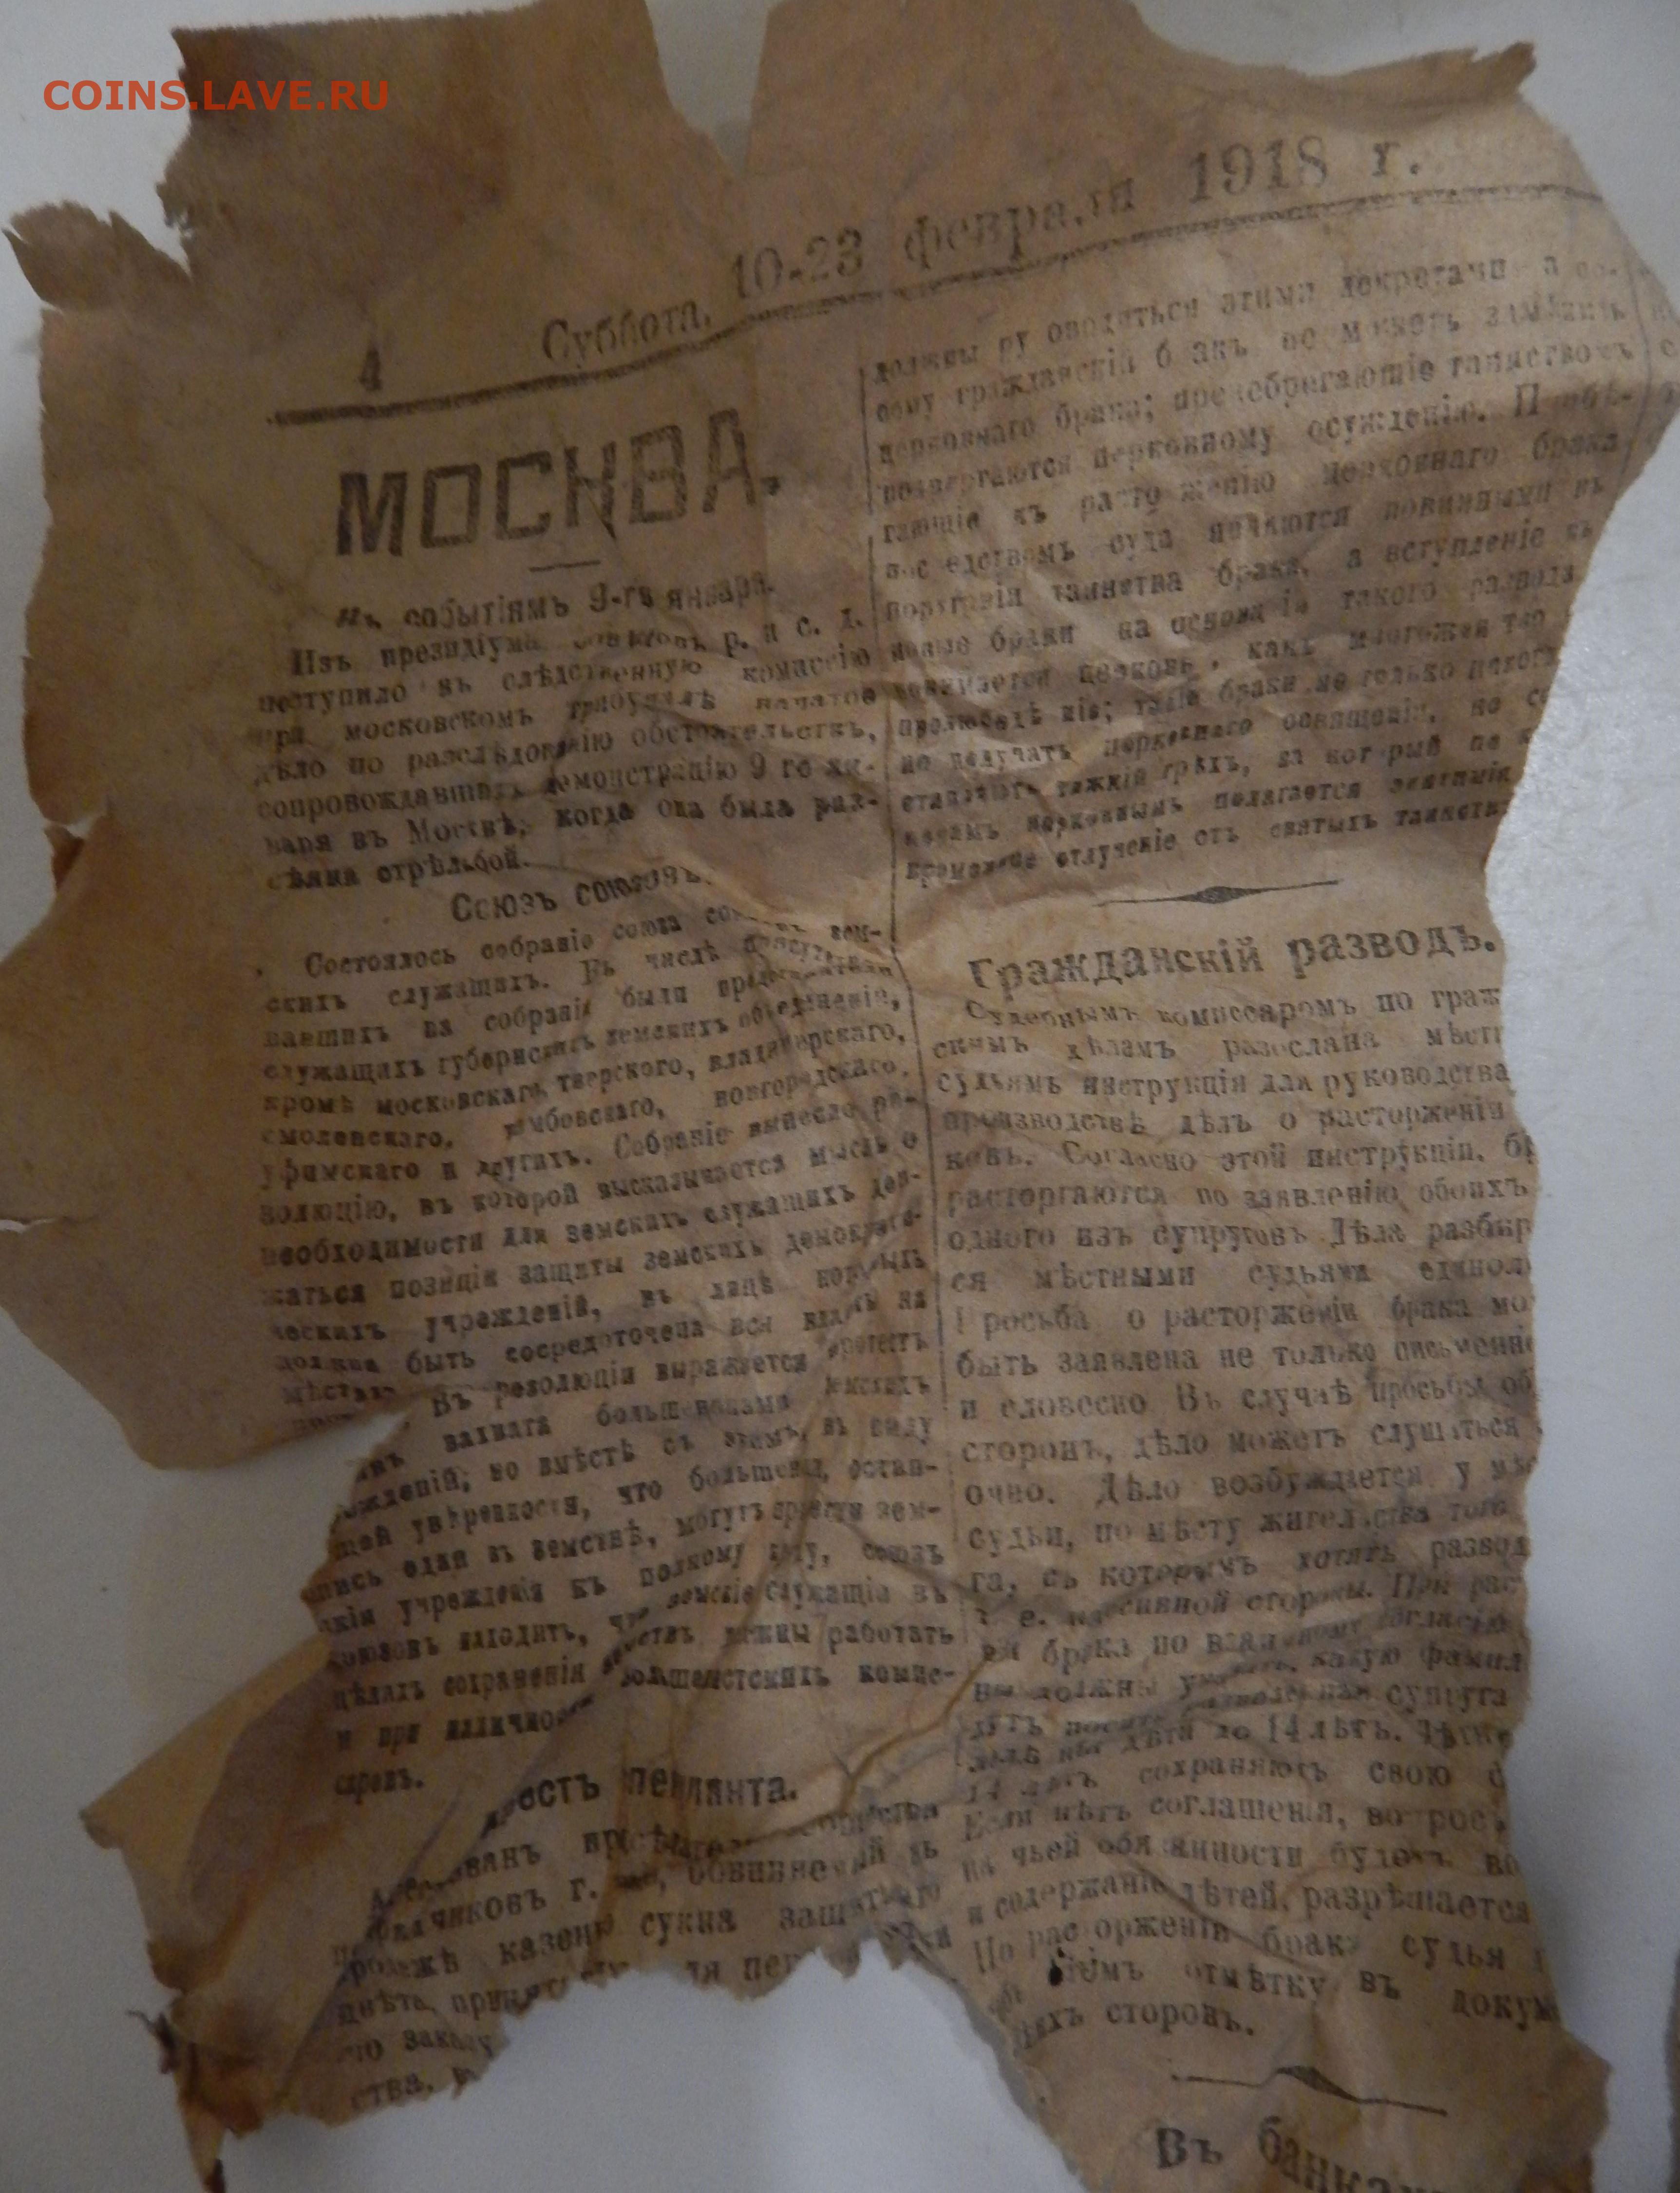 COINS.LAVE.RU
4 Суббота, 10-23 февраля 1918 г.
МОСКВА.
Къ событіямъ 9-го января.
Изъ президіума совѣтовъ р. и с. д.
поступило въ слѣдственную комиссію
при московскомъ трибуналѣ начатое
дѣло по разслѣдованію обстоятельствъ,
сопровождавшихъ демонстрацію 9 го ян-
варя въ Москвѣ, когда она была раз-
сѣяна стрѣльбой.
Союзъ союзовъ.
Состоялось собраніе союза зем-
скихъ служащихъ. Въ числѣ
вавшихъ на собраніи были
служащихъ губернскихъ земскихъ объединеній,
кромѣ московскаго, тверского, владимірскаго,
смоленскаго, тамбовскаго, новгородскаго,
уфимскаго и другихъ. Собраніе вынесло ре-
золюцію, въ которой высказывается мысль о
необходимости для земскихъ служащихъ дер-
жаться позиціи защиты земскихъ демократи-
ческихъ учрежденій, въ лицѣ которыхъ
должна быть сосредоточена вся власть на
мѣстахъ. Въ резолюціи выражается протестъ
захвата большевиками земскихъ
жденій; но вмѣстѣ съ этимъ, въ виду
щей увѣренности, что большевики, остав-
шись одни въ земствѣ, могутъ привести зем-
скія учрежденія къ полному союзъ
союзовъ находитъ, что земскіе служащіе въ
цѣляхъ сохраненія земствъ должны работать
и при наличности большевистскихъ комис-
саровъ.
Арестъ
Арестованъ
чиковъ г. обвиняемый въ
продажѣ казен сукна защитнаго
цвѣта,
по заказу
ства, в
должны руководиться этими декретами а со-
бому гражданскій бракъ не можетъ замѣнить
церковнаго брака; пренебрегающіе таинствомъ
подвергаются церковному осужденію. Прибѣ-
гающіе къ расторженію церковнаго брака
посредствомъ суда являются повинными въ
поруганіи таинства брака, а вступленіе въ
новые браки на основаніи такого развода
церковью, какъ
прелюбодѣяніе; такіе браки не только
не получатъ церковнаго освященія, но со
ставляютъ тяжкій грѣхъ, за который по
церковнымъ полагается
временное отлученіе отъ святыхъ таинствъ
Гражданскій разводъ.
Судебнымъ комиссаромъ по граж
скимъ дѣламъ разослана мѣстн
судьямъ инструкція для руководства
производствѣ дѣлъ о расторженіи
ковъ. Согласно этой инструкціи, бр
расторгаются по заявленію обоихъ
одного изъ супруговъ Дѣла разбир
ся мѣстными судьями единол
Просьба о расторженіи брака мо
быть заявлена не только письменно
и словесно Въ случаѣ просьбы об
сторонъ, дѣло можетъ слушаться
очно. Дѣло возбуждается у мѣс
судьи, по мѣсту жительства того
га, съ которымъ хотятъ развод
т. е. пассивной стороны. При рас
ии брака по взаимному согласію
ны должны указать, какую фамил
дутъ носить разведенная супруга
дѣти до 14 лѣтъ. Дѣти
14 лѣтъ сохраняютъ свою ф
Если нѣтъ соглашенія, вопросъ,
на чьей обязанности будетъ во
и содержаніе дѣтей, разрѣшается
По расторженіи брака судья
отмѣтку въ докум
сторонъ.
Въ банка